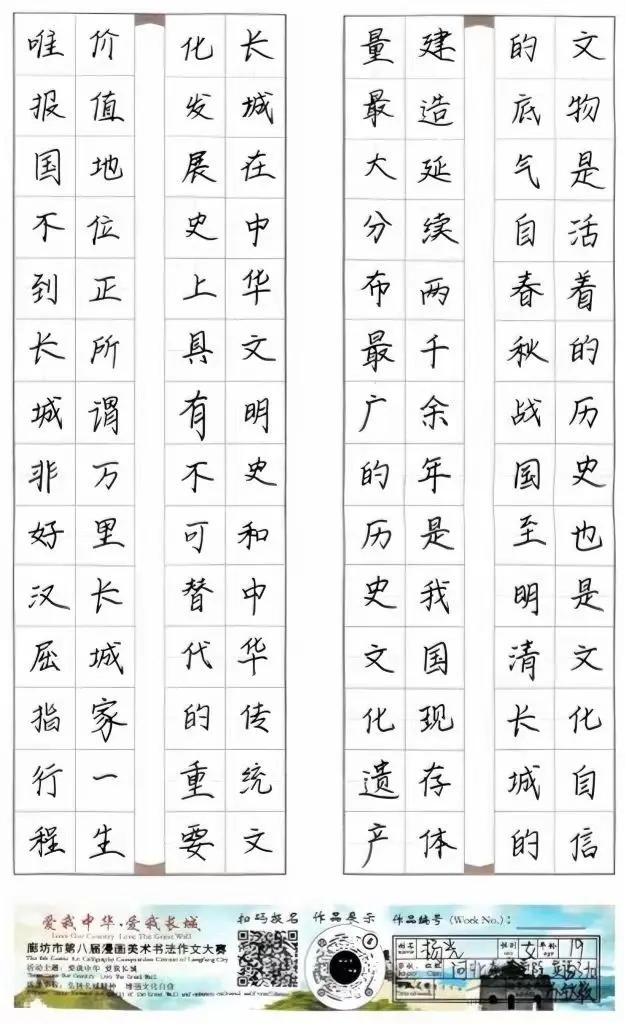 文物是活着的历史也是文化自信
的底气自春秋战国至明清长城的
建造延续两千余年是我国现存体
量最大分布最广的历史文化遗产
长城在中华文明史和中华传统文
化发展史上具有不可替代的重要
价值地位正所谓万里长城家一生
唯报国不到长城非好汉屈指行程
爱我中华·爱我长城
Love Our Country Love The Great Wall
廊坊市第八届漫画美术书法作文大赛
活动主题：爱我中华 爱我长城
弘扬长城精神 增强文化自信
扫码报名
作品展示
作品编号 (Work No.)：
姓名 杨光 性别 女 年龄 19